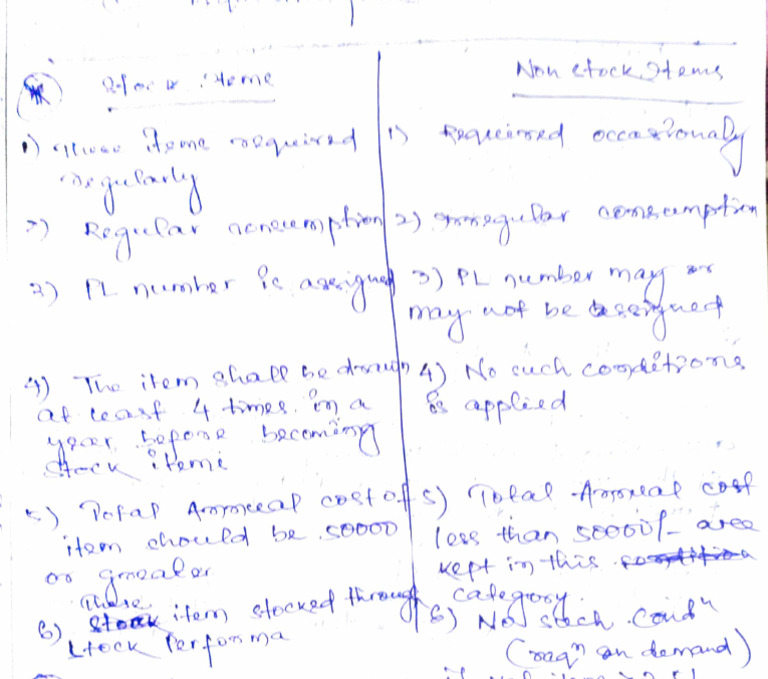 Stock items
1) These items required
regularly
2) Regular consumption
3) PL number is assigned
4) The item shall be drawn
at least 4 times in a
year before becoming
stock items
5) Total Annual cost of
item should be 50000
or greater
6) These item stocked through
stock Performa
Non stock Items
1) Required occasionaly
2) Irregular consumption
3) PL number may or
may not be assigned
4) No such conditions
is applied
5) Total Annual cost
less than 50000/- are
kept in this
category.
6) No such Condn
(reqn on demand)